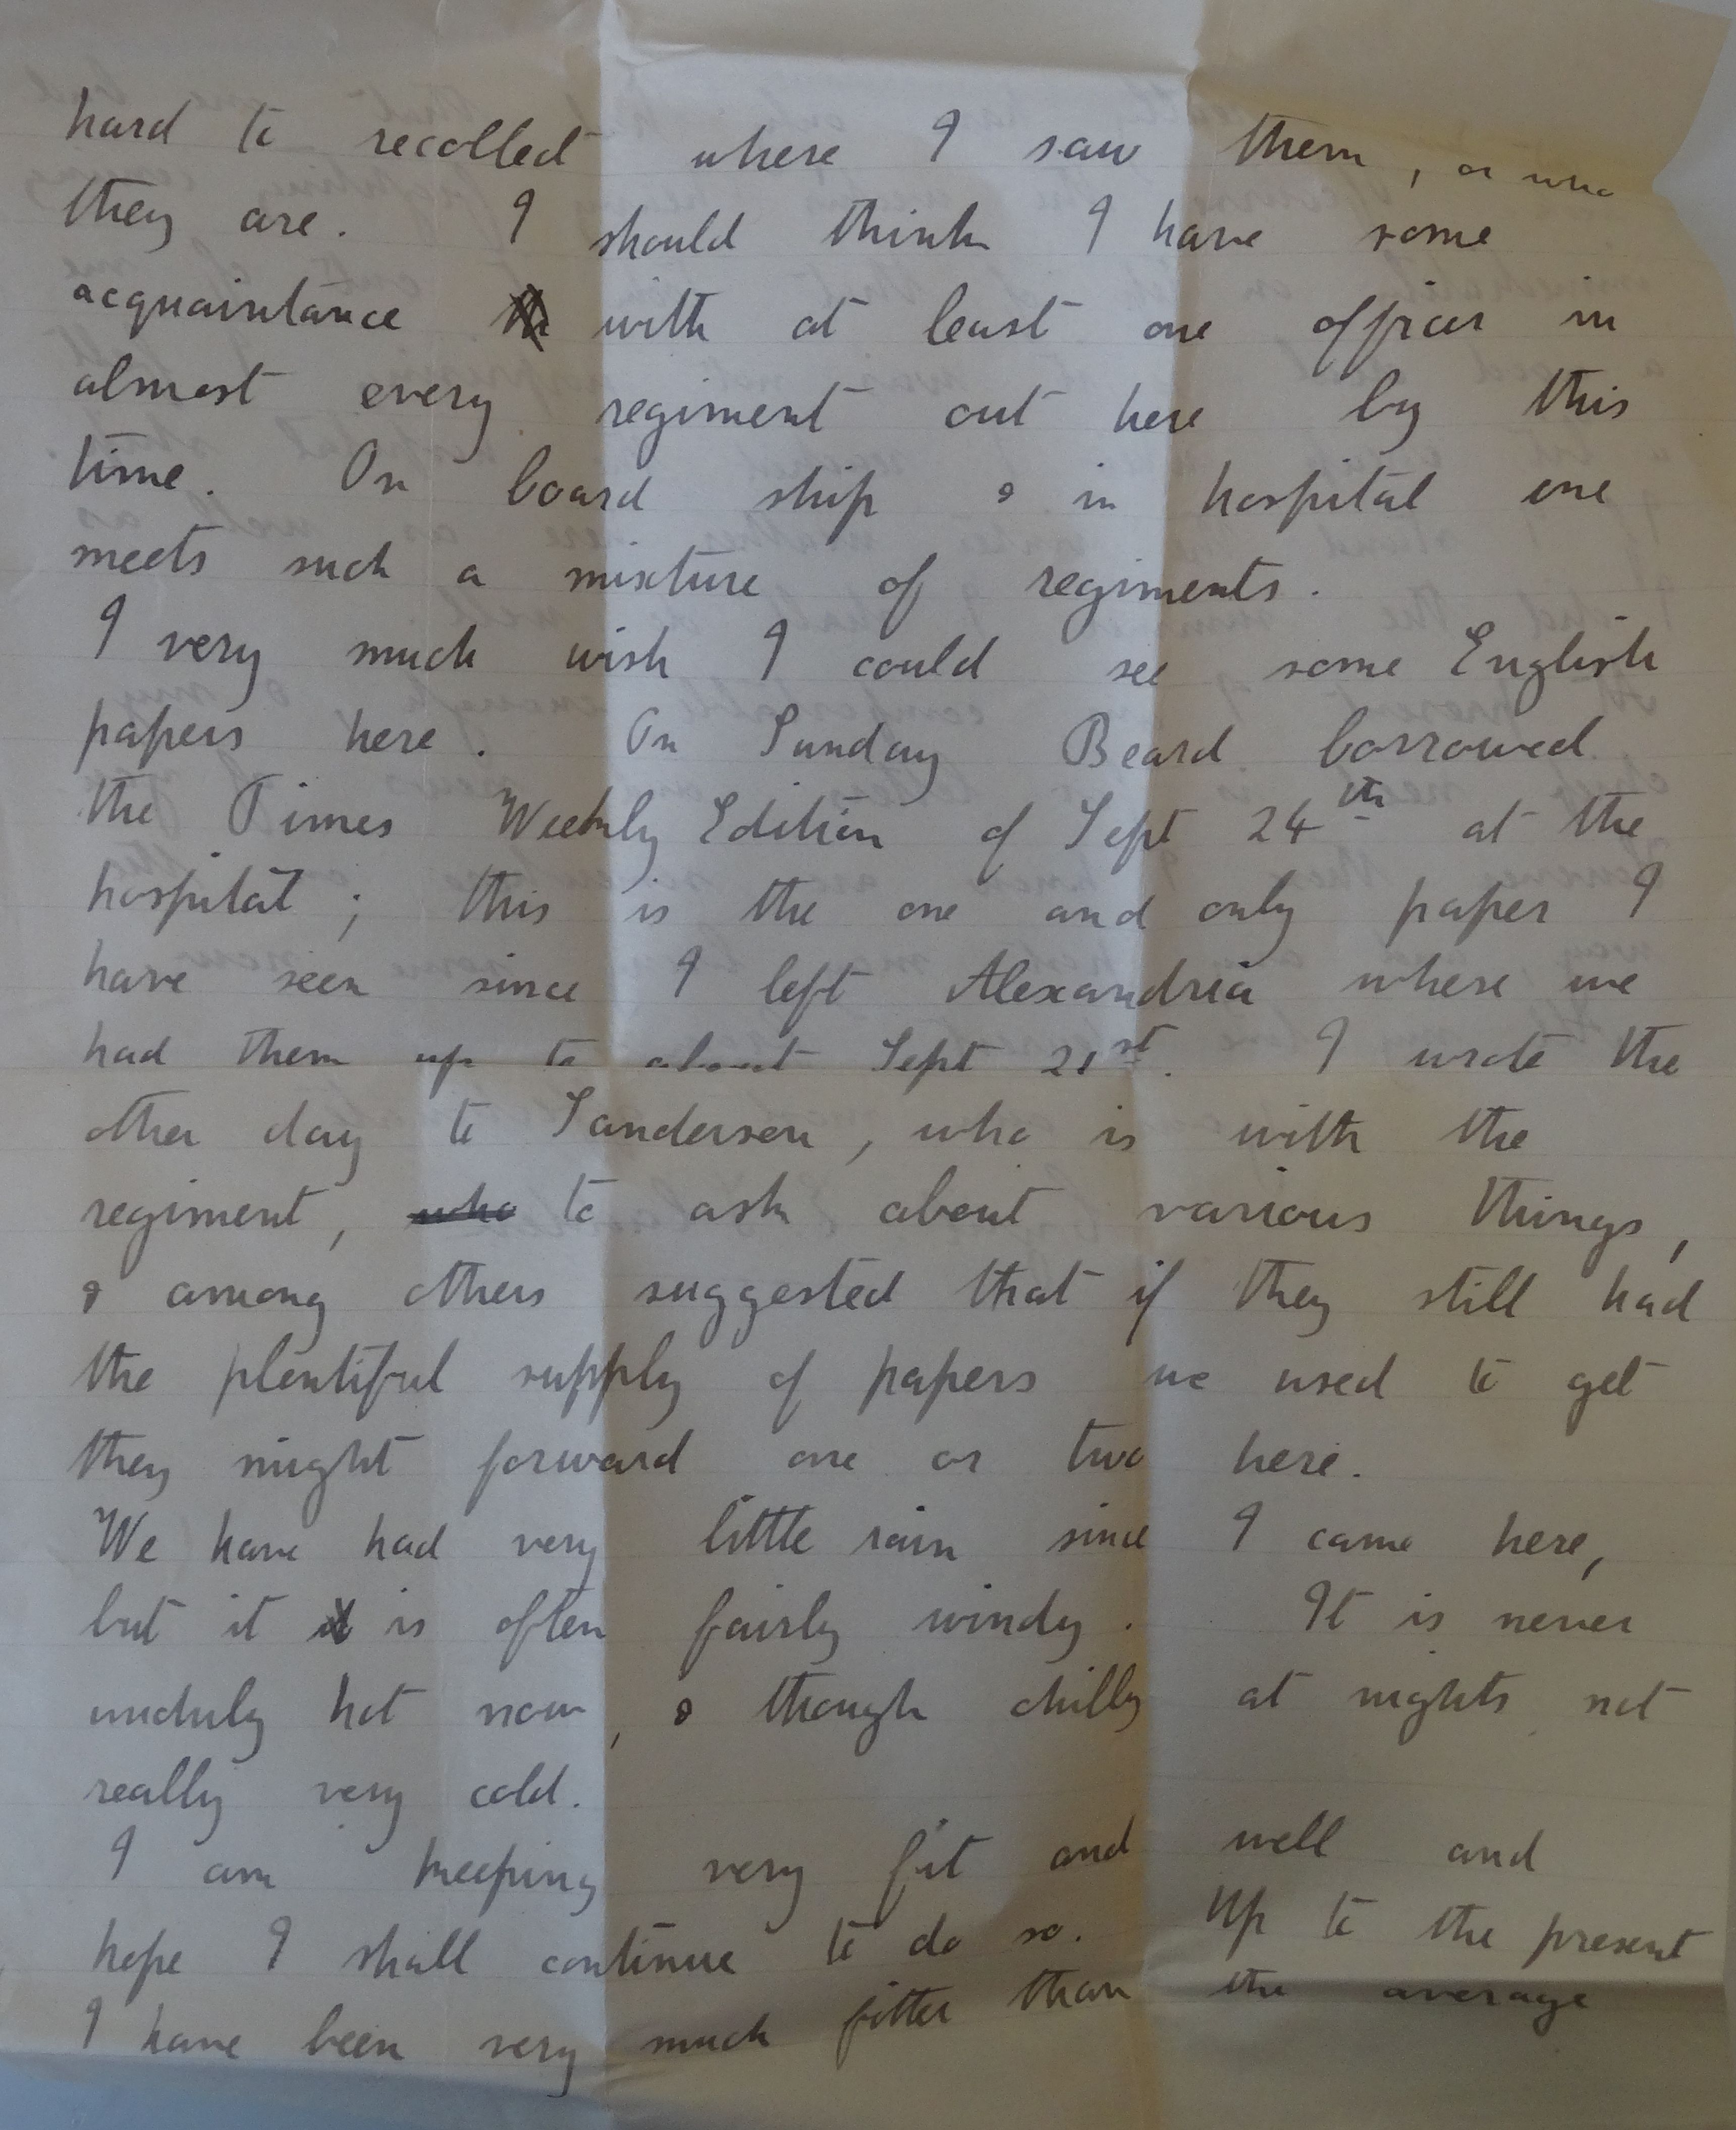 hard to recollect where I saw them, or who
they are. I should think I have some
acquaintance with at least one officer in
almost every regiment out here by this
time. On board ship & in hospital one
meets such a mixture of regiments.
I very much wish I could see some English
papers here. On Sunday Beard borrowed
the Times Weekly Edition of Sept 24th at the
hospital; this is the one and only paper I
have seen since I left Alexandria where we
had them up to about Sept 21st. I wrote the
other day to Sanderson, who is with the
regiment, who to ask about various things,
& among others suggested that if they still had
the plentiful supply of papers we used to get
they might forward one or two here.
We have had very little rain since I came here,
but it is often fairly windy. It is never
unduly hot now, & though chilly at nights not
really very cold.
I am keeping very fit and well and
hope I shall continue to do so. Up to the present
I have been very much fitter than the average